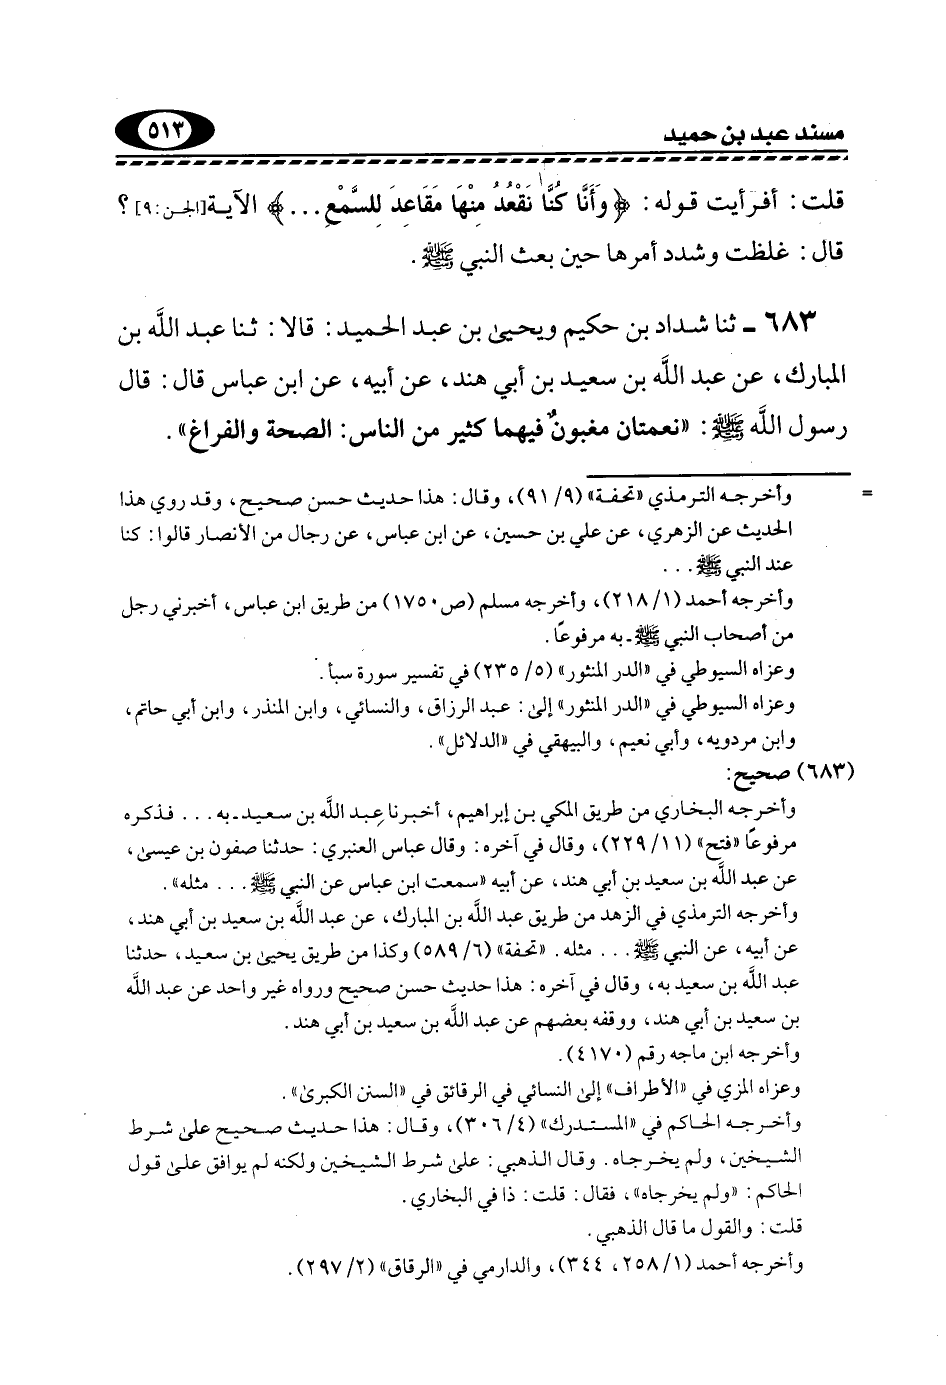 مسند عبد بن حميد ٥١٣
قلت: أفرأيت قوله: ﴿وَأَنَّا كُنَّا نَقْعُدُ مِنْهَا مَقَاعِدَ لِلسَّمْعِ...﴾ الآية[الجن:٩] ؟
قال: غلظت وشدد أمرها حين بعث النبي ﷺ.
٦٨٣ ـ ثنا شداد بن حكيم ويحيىٰ بن عبد الحميد: قالا: ثنا عبد اللَّه بن
المبارك، عن عبد اللَّه بن سعيد بن أبي هند، عن أبيه، عن ابن عباس قال: قال
رسول اللَّه ﷺ: «نعمتان مغبونٌ فيهما كثير من الناس: الصحة والفراغ».
= وأخرجه الترمذي «تحفة» (٩/ ٩١)، وقال: هذا حديث حسن صحيح، وقد روي هذا
الحديث عن الزهري، عن علي بن حسين، عن ابن عباس، عن رجال من الأنصار قالوا: كنا
عند النبي ﷺ...
وأخرجه أحمد (١/ ٢١٨)، وأخرجه مسلم (ص ١٧٥٠) من طريق ابن عباس، أخبرني رجل
من أصحاب النبي ﷺ ـ به مرفوعًا.
وعزاه السيوطي في «الدر المنثور» (٥/ ٢٣٥) في تفسير سورة سبأ.
وعزاه السيوطي في «الدر المنثور» إلىٰ: عبد الرزاق، والنسائي، وابن المنذر، وابن أبي حاتم،
وابن مردويه، وأبي نعيم، والبيهقي في «الدلائل».
(٦٨٣) صحيح:
وأخرجه البخاري من طريق المكي بن إبراهيم، أخبرنا عبد اللَّه بن سعيد ـ به... فذكره
مرفوعًا «فتح» (١١/ ٢٢٩)، وقال في آخره: وقال عباس العنبري: حدثنا صفون بن عيسىٰ،
عن عبد اللَّه بن سعيد بن أبي هند، عن أبيه «سمعت ابن عباس عن النبي ﷺ... مثله».
وأخرجه الترمذي في الزهد من طريق عبد اللَّه بن المبارك، عن عبد اللَّه بن سعيد بن أبي هند،
عن أبيه، عن النبي ﷺ... مثله. «تحفة» (٦/ ٥٨٩) وكذا من طريق يحيىٰ بن سعيد، حدثنا
عبد اللَّه بن سعيد به، وقال في آخره: هذا حديث حسن صحيح ورواه غير واحد عن عبد اللَّه
بن سعيد بن أبي هند، ووقفه بعضهم عن عبد اللَّه بن سعيد بن أبي هند.
وأخرجه ابن ماجه رقم (٤١٧٠).
وعزاه المزي في «الأطراف» إلىٰ النسائي في الرقائق في «السنن الكبرىٰ».
وأخرجه الحاكم في «المستدرك» (٤/ ٣٠٦)، وقال: هذا حديث صحيح علىٰ شرط
الشيخين، ولم يخرجاه. وقال الذهبي: علىٰ شرط الشيخين ولكنه لم يوافق علىٰ قول
الحاكم: «ولم يخرجاه»، فقال: قلت: ذا في البخاري.
قلت: والقول ما قال الذهبي.
وأخرجه أحمد (١/ ٢٥٨، ٣٤٤)، والدارمي في «الرقاق» (٢/ ٢٩٧).